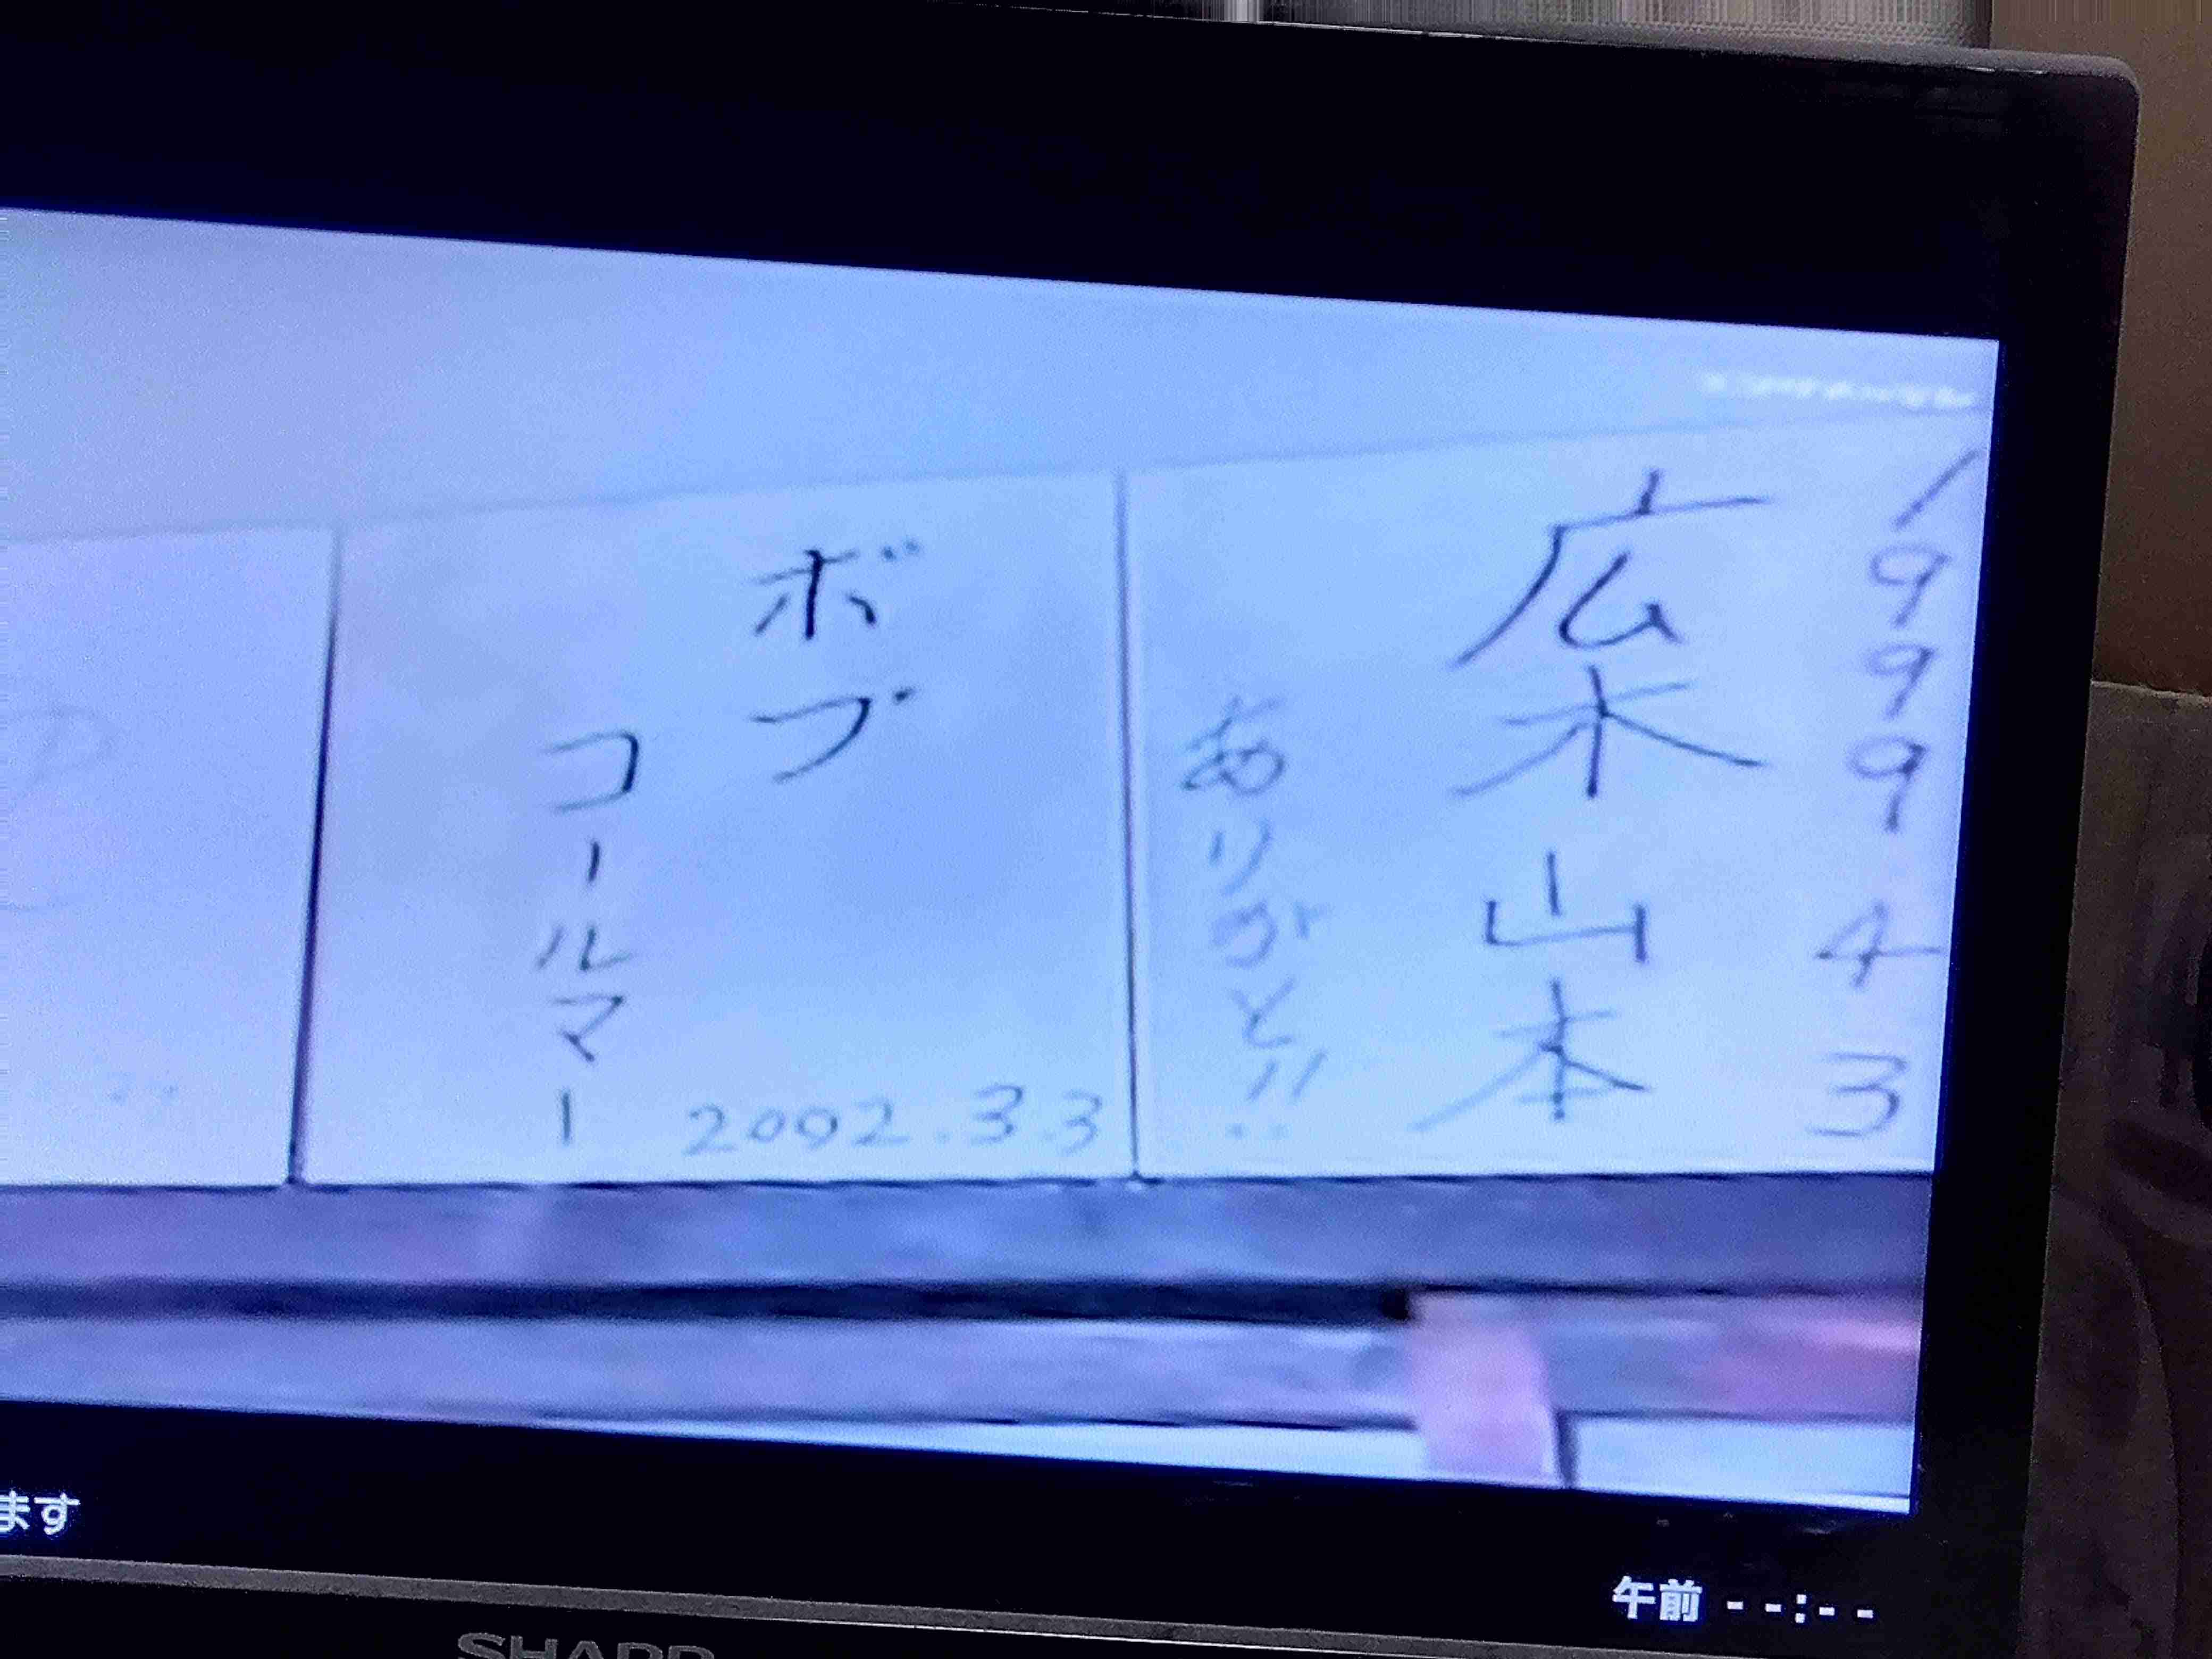 1999 4 3
広木山本
ありがと!!
ボブ
コールマー
2002.3.3
ます
午前 --:--
SHARP